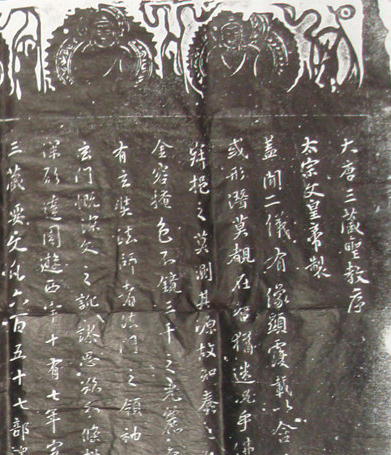 大唐三藏聖教序
太宗文皇帝製
蓋聞二儀有像顯覆載以含
或形潛莫覩在智猶迷況乎佛
舛挹之莫測其源故知蠢
金容掩色不鏡三千之光麗象
有玄奘法師者法門之領袖
玄門慨深文之訛謬思欲分條
周遊西宇十有七年窮
三藏要文凡六百五十七部譯